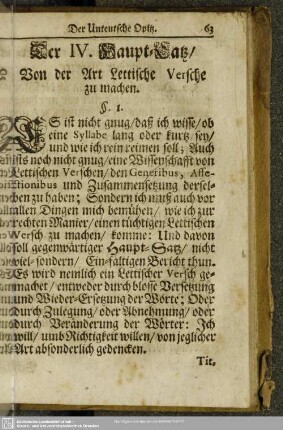 Der Unteutsche Opitz. 63
Der IV. Haupt-Satz/
Von der Art Lettische Versche
zu machen.
§. 1.
ES ist nicht gnug/daß ich wisse/ob
eine Syllabe lang oder kurtz sey/
und wie ich rein reimen soll; Auch
ists noch nicht gnug/eine Wissenschafft von
Lettischen Verschen/den Generibus, Affe-
ctionibus und Zusammensetzung dersel-
ben zu haben; Sondern ich muß auch vor
allen Dingen mich bemühen/wie ich zur
rechten Manier/einen tüchtigen Lettischen
Versch zu machen/komme: Und davon
soll gegenwärtiger Haupt-Satz/nicht
viel-sondern/Ein-fältigen Bericht thun.
Es wird nemlich ein Lettischer Versch ge-
machet/entweder durch blosse Versetzung
und Wieder-Ersetzung der Wörte; Oder
durch Zulegung/oder Abnehmung/oder
durch Veränderung der Wörter: Ich
will/umb Richtigkeit willen/von jeglicher
Art absonderlich gedencken.
Tit.